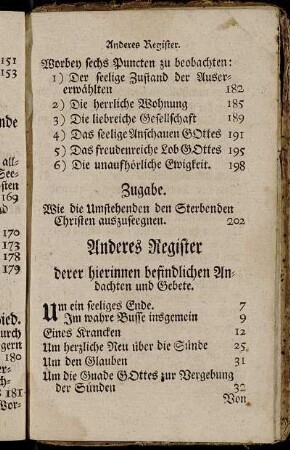 151
153
nde
all-
See-
osten
169
nd
170
173
178
179
ied.
durch
gern
180
er-
ch-
s 181
Vor-
Anderes Register.
Worbey sechs Puncten zu beobachten:
1) Der seelige Zustand der Auser-
erwählten 182
2) Die herrliche Wohnung 185
3) Die liebreiche Gesellschaft 189
4) Das seelige Anschauen GOttes 191
5) Das freudenreiche Lob GOttes 195
6) Die unaufhörliche Ewigkeit. 198
Zugabe.
Wie die Umstehenden den Sterbenden
Christen auszuseegnen. 202
Anderes Register
derer hierinnen befindlichen An-
dachten und Gebete.
Um ein seeliges Ende. 7
Im wahre Busse insgemein 9
Eines Krancken 12
Um herzliche Reu über die Sünde 25
Um den Glauben 31
Um die Gnade GOttes zur Vergebung
der Sünden 32
Von